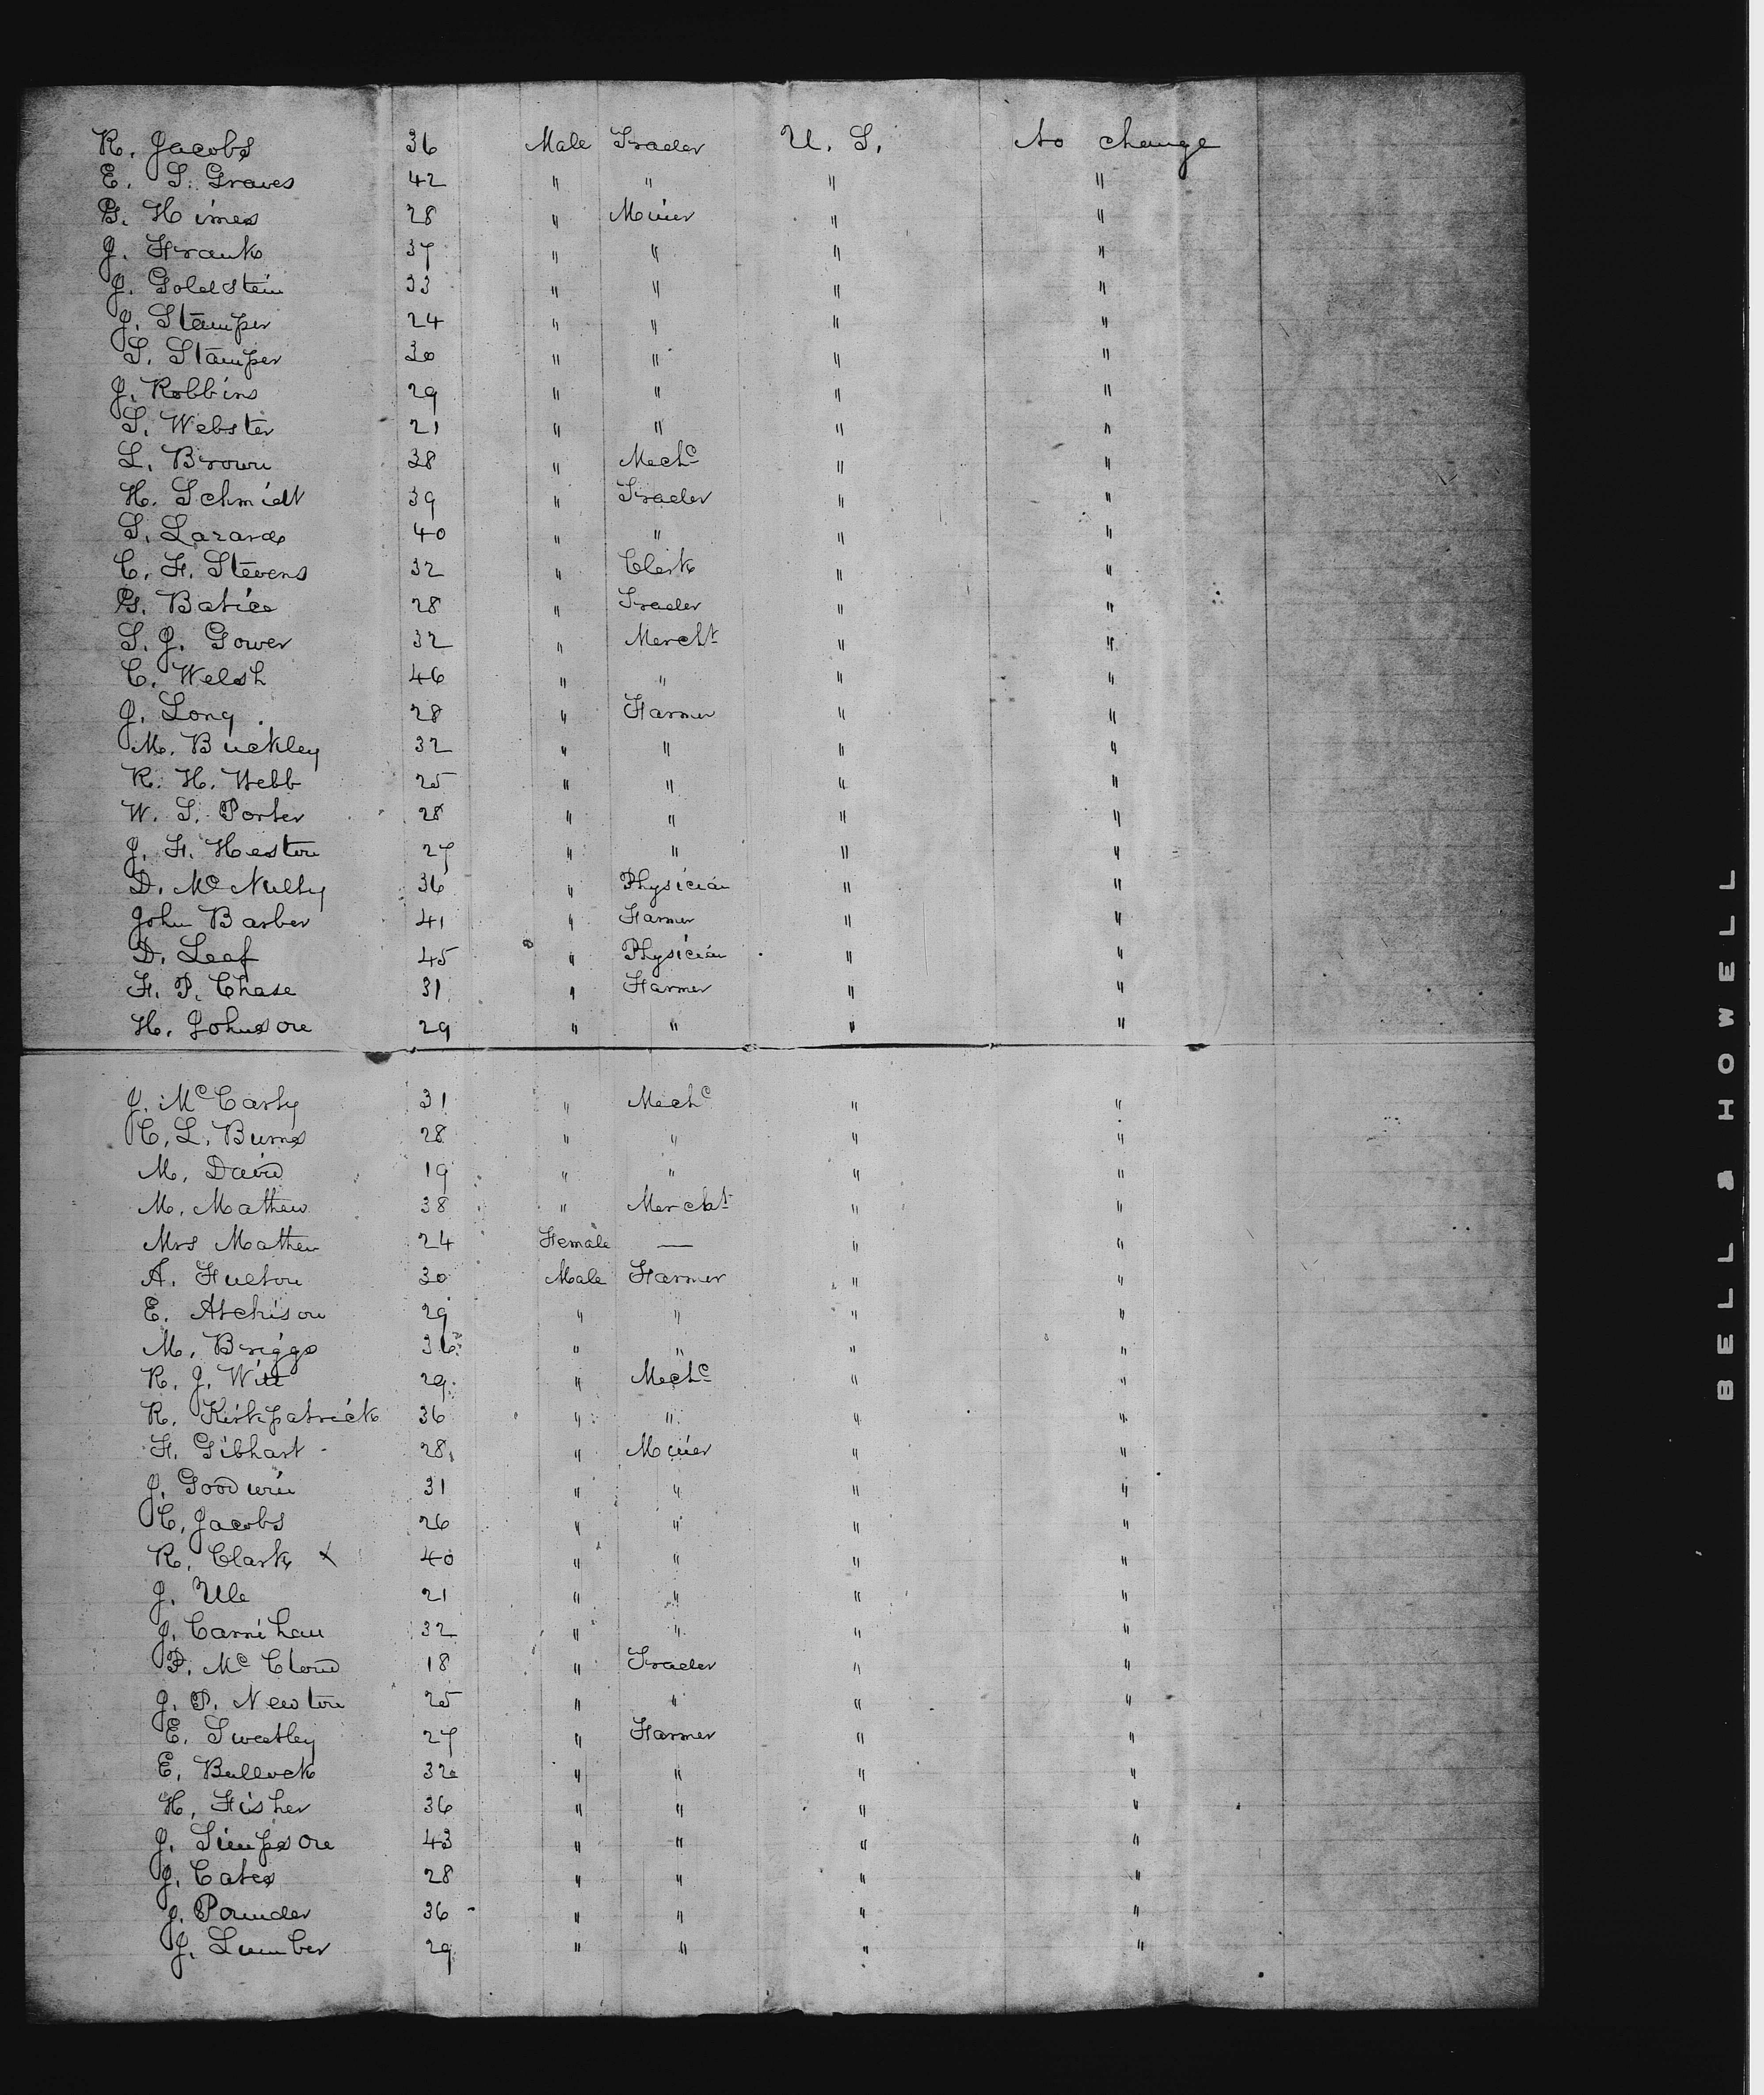 R. Jacobs 36 Male Trader U. S. No change
E. S. Graves 42 " " " "
G. Himes 28 " Miner " "
J. Frank 37 " " " "
J. Goldstein 33 " " " "
J. Stamper 24 " " " "
S. Stamper 30 " " " "
J. Robbins 29 " " " "
S. Webster 21 " " " "
L. Brown 38 " Mechc " "
H. Schmidt 39 " Trader " "
S. Lazard 40 " " " "
C. F. Stevens 32 " Clerk " "
G. Batice 28 " Trader " "
S. J. Gower 32 " Mercht " "
C. Welsh 46 " " " "
J. Long 28 " Farmer " "
M. Buckley 32 " " " "
R. H. Webb 25 " " " "
W. S. Porter 28 " " " "
J. F. Heston 27 " " " "
D. McNulty 36 " Physician " "
John Barber 41 " Farmer " "
D. Leaf 45 " Physician " "
F. P. Chase 31 " Farmer " "
H. Johnson 29 " " " "
J. McCarty 31 " Mechc " "
C. L. Burns 28 " " " "
M. David 19 " " " "
M. Mathew 38 " Mercht " "
Mrs Mathew 24 Female — " "
A. Fulton 30 Male Farmer " "
E. Atchison 29 " " " "
M. Briggs 36 " " " "
R. J. Witt 29 " Mechc " "
R. Kirkpatrick 36 " " " "
F. Gibhart 28 " Miner " "
J. Goodwin 31 " " " "
C. Jacobs 26 " " " "
R. Clark x 40 " " " "
J. Ule 21 " " " "
J. Carnihan 32 " " " "
P. McCloud 18 " Trader " "
J. P. Newton 25 " " " "
E. Sweatley 27 " Farmer " "
E. Bullock 32 " " " "
H. Fisher 36 " " " "
J. Simpson 43 " " " "
J. Cates 28 " " " "
J. Pounder 36 " " " "
J. Lumber 29 " " " "
BELL & HOWELL